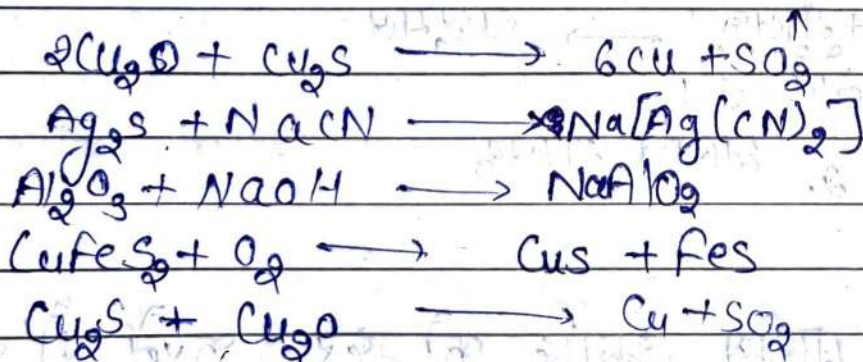 2Cu₂O + Cu₂S ⟶ 6Cu + SO₂↑
Ag₂S + NaCN ⟶ Na[Ag(CN)₂]
Al₂O₃ + NaOH ⟶ NaAlO₂
CuFeS₂ + O₂ ⟶ CuS + FeS
Cu₂S + Cu₂O ⟶ Cu + SO₂